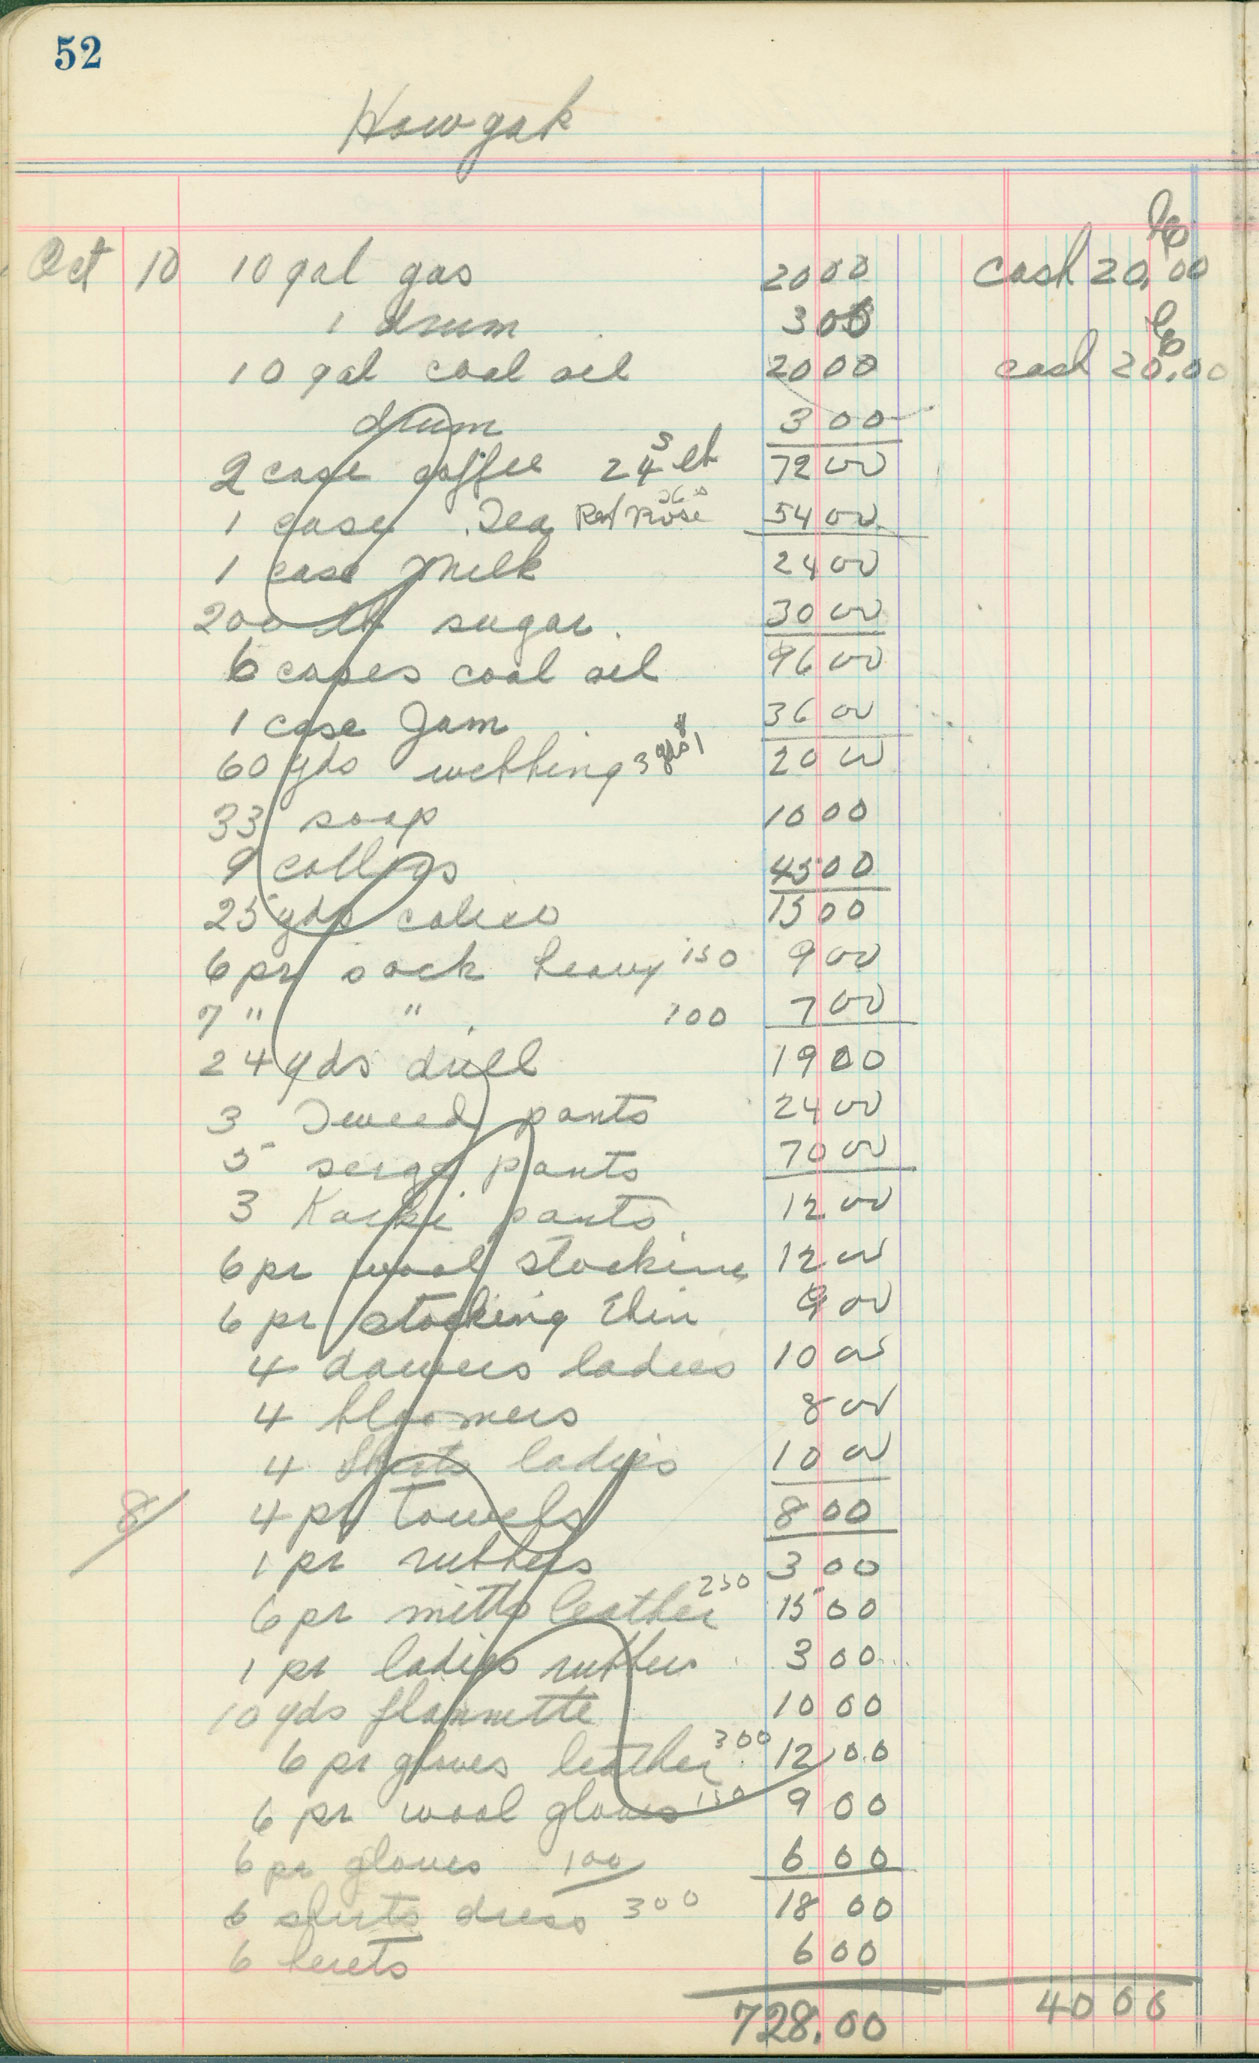 52
Howgak
Oct 10 10 gal gas 20 00 cash 20,00
1 drum 3 00
10 gal coal oil 20 00 cash 20.00
drum 3 00
2 case coffee 24 lb 72 00
1 case Tea Red Rose 54 00
1 case milk 24 00
200 lb sugar 30 00
6 cases coal oil 96 00
1 case Jam 36 00
60 yds webbing 3 yds 1 20 00
33 soap 10 00
9 45 00
25 yds calico 15 00
6 pr sock heavy 150 9 00
7 " " 100 7 00
24 yds drill 19 00
3 Tweed pants 24 00
5 serge pants 70 00
3 Karki pants 12 00
6 pr wool stocking 12 00
6 pr stocking thin 9 00
4 dawers ladies 10 00
4 bloomers 8 00
4 Shirts ladies 10 00
8/ 4 pr Towels 8 00
1 pr rubbers 3 00
6 pr mitts leather 250 15 00
1 pr ladies rubbers 3 00
10 yds flannette 10 00
6 pr gloves leather 300 12 00
6 pr wool gloves 150 9 00
6 pr gloves 100 6 00
6 shirts dress 300 18 00
6 berets 6 00
728.00 40 00